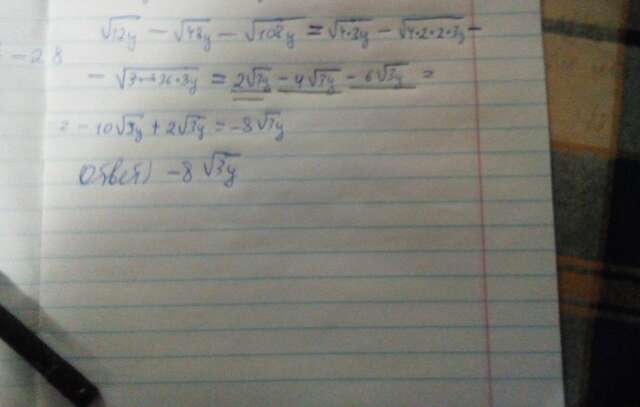 √12y − √48y − √108y = √4·3y − √4·2·2·3y −
−28
− √36·3y = 2√3y − 4√3y − 6√3y =
= −10√3y + 2√3y = −8√3y
Ответ) −8√3y